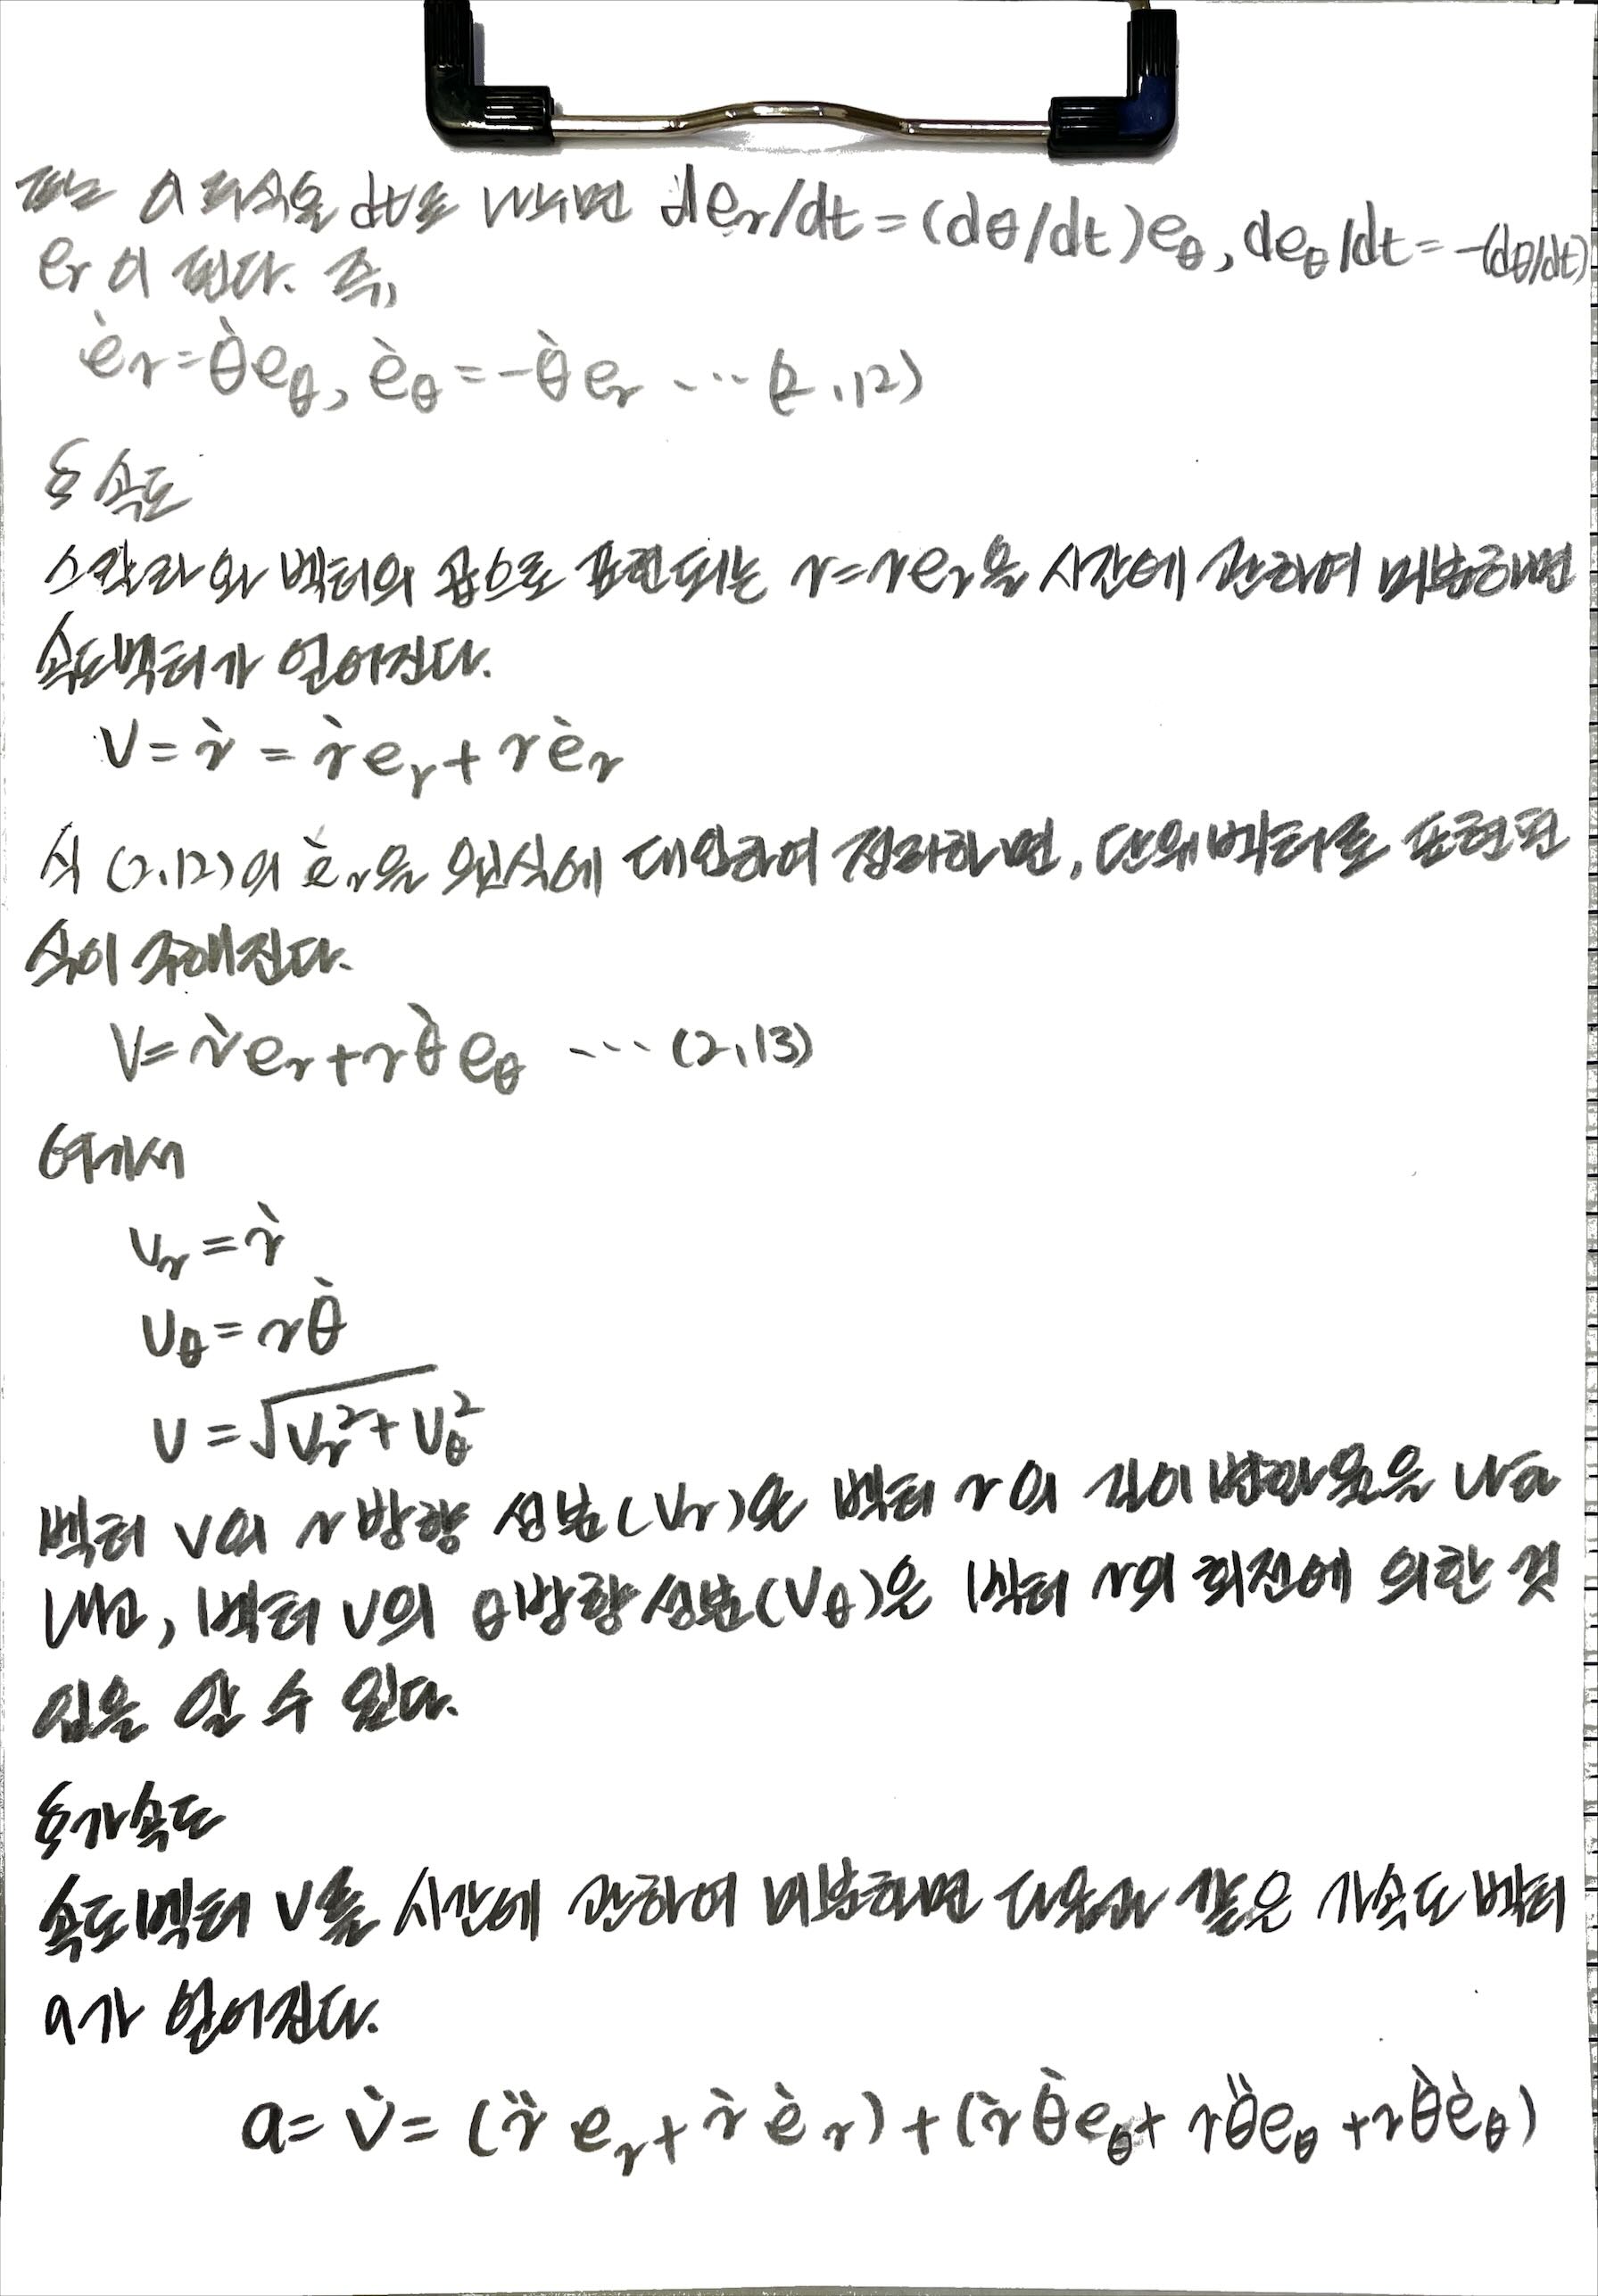 또는 이 두식을 dt로 나누면 der/dt=(dθ/dt)eθ, deθ/dt=-(dθ/dt)
er이 된다. 즉,
ėr=θ̇eθ, ėθ=-θ̇er ⋯(2,12)
§속도
스칼라와 벡터의 곱으로 표현되는 r=rer을 시간에 관하여 미분하면
속도벡터가 얻어진다.
V=ṙ=ṙer+rėr
식(2,12)의 ėr을 윗식에 대입하여 정리하면, 단위벡터로 표현된
식이 구해진다.
V=ṙer+rθ̇eθ ⋯(2,13)
여기서
vr=ṙ
vθ=rθ̇
v=√vr²+vθ²
벡터 v의 r방향 성분(vr)은 벡터 r의 길이 변화율을 나타
내고, 벡터 v의 θ방향 성분(vθ)은 벡터 r의 회전에 의한 것
임을 알 수 있다.
§가속도
속도벡터 v를 시간에 관하여 미분하면 다음과 같은 가속도 벡터
a가 얻어진다.
a=v̇=(r̈er+ṙėr)+(ṙθ̇eθ+rθ̈eθ+rθ̇ėθ)